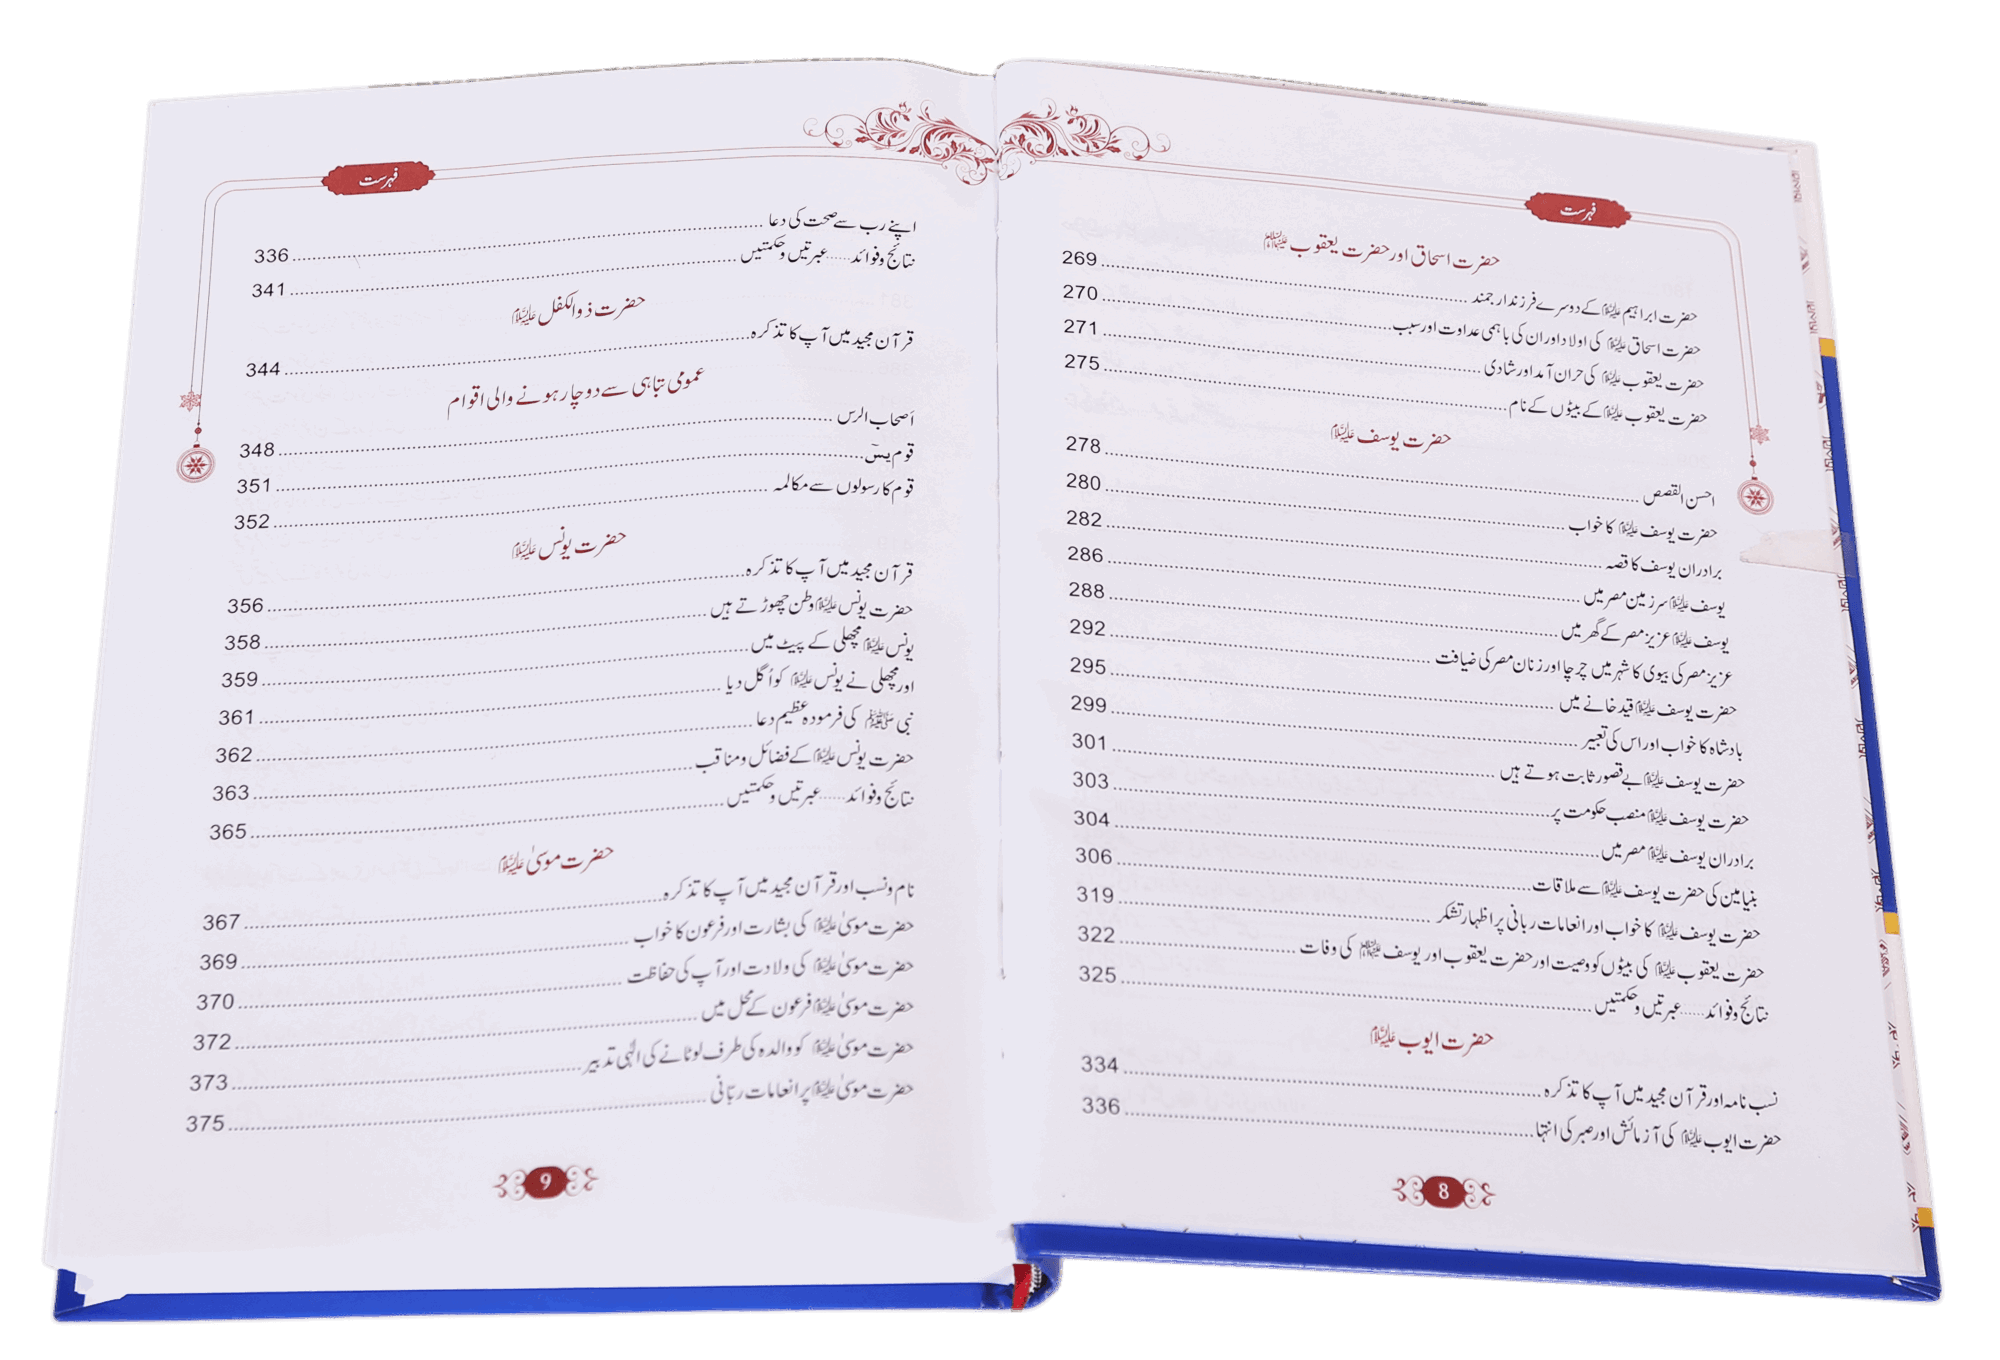 فہرست
حضرت اسحاق اور حضرت یعقوب علیہما السلام
حضرت ابراہیم علیہ السلام کے دوسرے فرزند ارجمند 269
حضرت اسحاق علیہ السلام کی اولاد اور ان کی باہمی عداوت اور سبب 270
حضرت یعقوب علیہ السلام کی حران آمد اور شادی 271
حضرت یعقوب علیہ السلام کے بیٹوں کے نام 275
حضرت یوسف علیہ السلام
احسن القصص 278
حضرت یوسف علیہ السلام کا خواب 280
برادران یوسف کا قصہ 282
یوسف علیہ السلام سرزمین مصر میں 286
یوسف علیہ السلام عزیز مصر کے گھر میں 288
عزیز مصر کی بیوی کا شہر میں چرچا اور زنان مصر کی ضیافت 292
حضرت یوسف علیہ السلام قید خانے میں 295
بادشاہ کا خواب اور اس کی تعبیر 299
حضرت یوسف علیہ السلام بے قصور ثابت ہوتے ہیں 301
حضرت یوسف علیہ السلام منصب حکومت پر 303
برادران یوسف علیہ السلام مصر میں 304
بنیامین کی حضرت یوسف علیہ السلام سے ملاقات 306
حضرت یوسف علیہ السلام کا خواب اور انعامات ربانی پر اظہار تشکر 319
حضرت یعقوب علیہ السلام کی بیٹوں کو وصیت اور حضرت یعقوب اور یوسف علیہما السلام کی وفات 322
نتائج و فوائد...... عبرتیں و حکمتیں 325
حضرت ایوب علیہ السلام
نسب نامہ اور قرآن مجید میں آپ کا تذکرہ 334
حضرت ایوب علیہ السلام کی آزمائش اور صبر کی انتہا 336
8
فہرست
اپنے رب سے صحت کی دعا 336
نتائج و فوائد...... عبرتیں و حکمتیں 341
حضرت ذوالکفل علیہ السلام
قرآن مجید میں آپ کا تذکرہ 344
عمومی تباہی سے دوچار ہونے والی اقوام
اَصحاب الرس 348
قوم یسٓ 351
قوم کا رسولوں سے مکالمہ 352
حضرت یونس علیہ السلام
قرآن مجید میں آپ کا تذکرہ 356
حضرت یونس علیہ السلام وطن چھوڑتے ہیں 358
یونس علیہ السلام مچھلی کے پیٹ میں 359
اور مچھلی نے یونس علیہ السلام کو اُگل دیا 361
نبی صلی اللہ علیہ وسلم کی فرمودہ عظیم دعا 362
حضرت یونس علیہ السلام کے فضائل و مناقب 363
نتائج و فوائد...... عبرتیں و حکمتیں 365
حضرت موسیٰ علیہ السلام
نام و نسب اور قرآن مجید میں آپ کا تذکرہ 367
حضرت موسیٰ علیہ السلام کی بشارت اور فرعون کا خواب 369
حضرت موسیٰ علیہ السلام کی ولادت اور آپ کی حفاظت 370
حضرت موسیٰ علیہ السلام فرعون کے محل میں 372
حضرت موسیٰ علیہ السلام کو والدہ کی طرف لوٹانے کی الٰہی تدبیر 373
حضرت موسیٰ علیہ السلام پر انعامات ربّانی 375
9